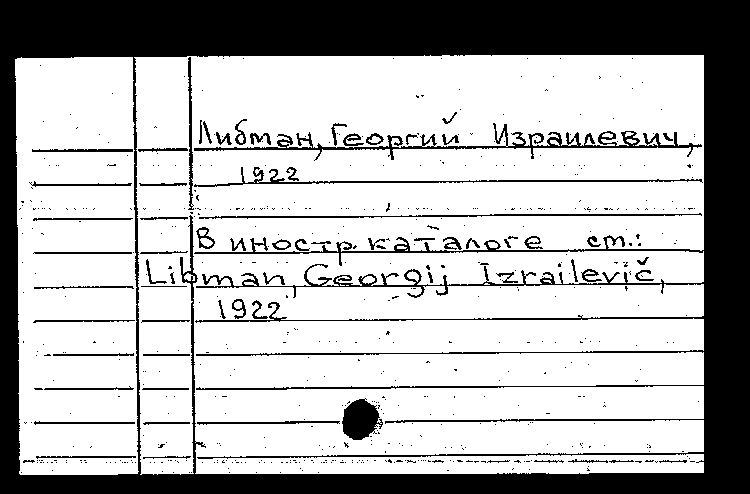 Либман, Георгий Израилевич,
1922
В иностр. каталоге см.:
Libman, Georgij Izrailevič,
1922